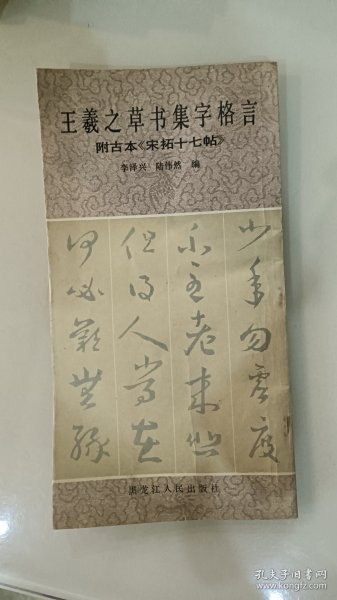 王羲之草书集字格言
附古本《宋拓十七帖》
李泽兴 陆伟然 编
少年勿虚度
不至老来
但得人常在
何必
黑龙江人民出版社
孔夫子旧书网
www.kongfz.com